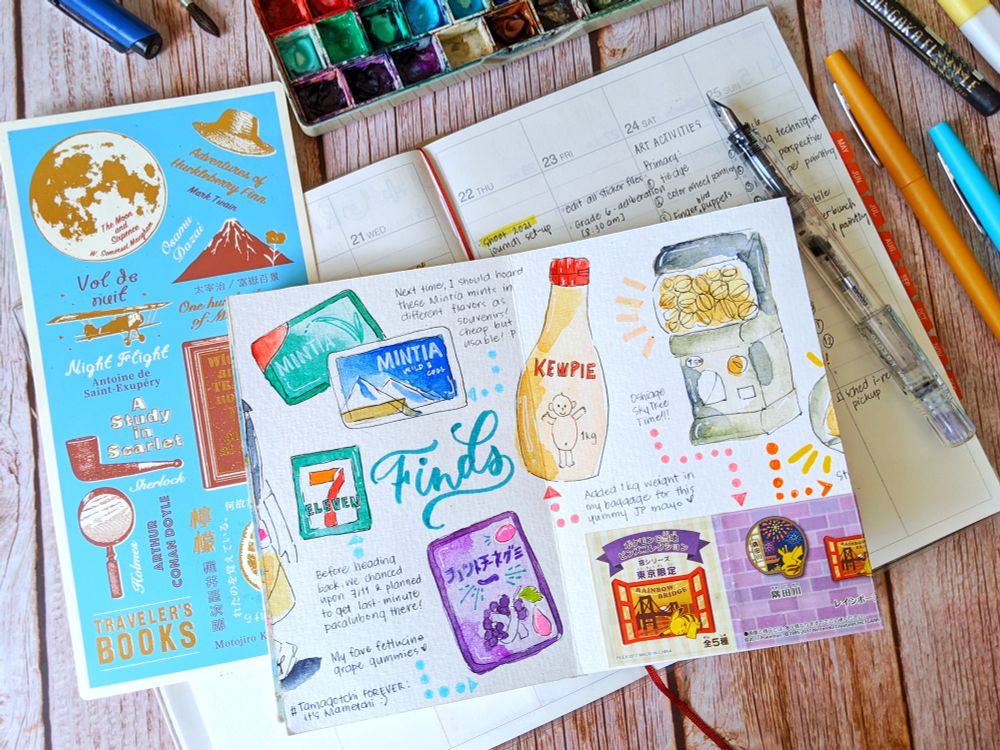 The Moon
and
Sixpence
W. Somerset Maugham
Adventures of
Huckleberry Finn
Mark Twain
Osamu
Dazai
太宰治/富嶽百景
Vol de
nuit
Night Flight
Antoine de
Saint-Exupéry
One hundred
A
Study
in
Scarlet
Sherlock
Holmes
ARTHUR
CONAN DOYLE
檸檬
梶井基次郎
Motojiro K
TRAVELER'S
BOOKS
21 WED
22 THU
23 FRI
24 SAT
25 SUN
journal set-up
edit all sticker files
Grade 6 - deliberation
[8:30 am]
ART ACTIVITIES
Primary:
① tie dye
② color wheel painting
③ Finger puppets
techniques
perspective
painting
sched
pickup
MAY
JUN
JUL
AUG
SEP
OCT
MINTIA
MINTIA
WILD &
COOL
Next time, I should hoard
these Mintia mints in
different flavors as
souvenirs!
cheap but
usable! :P
Finds
7
ELEVEN
Before heading
back, we chanced
upon 7/11 & planned
to get last-minute
pasalubong there!
My fave fettucine
grape gummies
#Tamagotchi FOREVER:
It's Mametchi :)
KEWPIE
1kg
Added 1kg weight in
my baggage for this
yummy JP mayo
Oshiage
SkyTree
Time!!!
ポケモンご当地
ピンズコレクション
窓シリーズ
東京限定
RAINBOW
BRIDGE
全5種
隅田川
レインボー